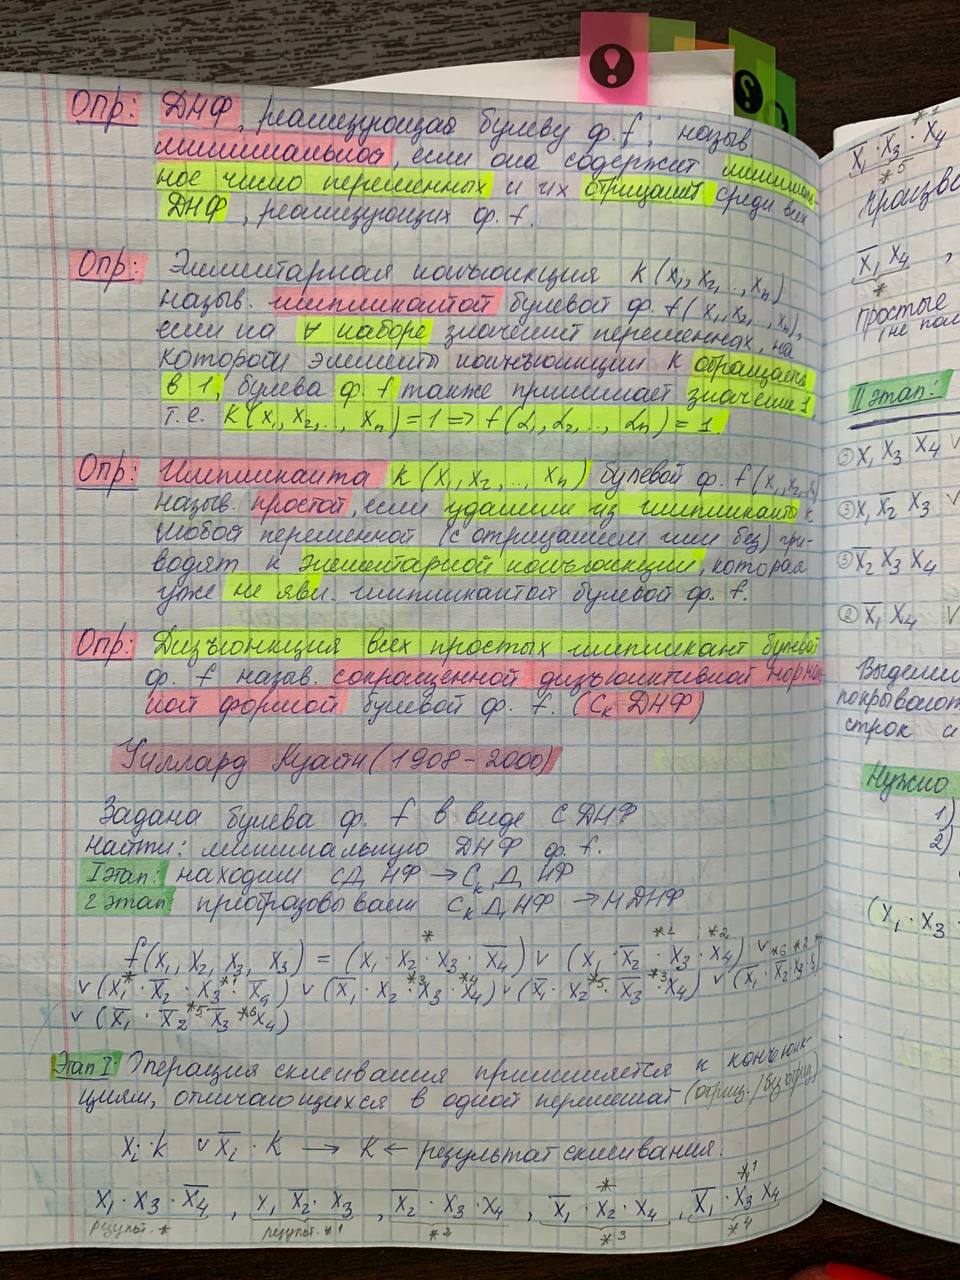 Опр: ДНФ, реализующая булеву ф. f, назыв
минимальной, если она содержит минималь-
ное число переменных и их отрицаний среди всех
ДНФ, реализующих ф. f.
Опр: Элементарная конъюнкция K(x₁, x₂, .., xₙ)
назыв. импликантой булевой ф. f(x₁, x₂, .., xₙ),
если на ∀ наборе значений переменных, на
которой элементы конъюнкции K обращается
в 1, булева ф. f также принимает значение 1,
т.е. K(x₁, x₂, .., xₙ) = 1 => f(α₁, α₂, .., αₙ) = 1.
Опр: Импликанта K(x₁, x₂, .., xₙ) булевой ф. f(x₁, x₂,
назыв. простой, если удаление из импликанты K
любой переменной (с отрицанием или без) при-
водят к элементарной конъюнкции, которая
уже не явл. импликантой булевой ф. f.
Опр: Дизъюнкция всех простых импликант булевой
ф. f назыв. сокращенной дизъюнктивной нормаль-
ной формой булевой ф. f. (Cₖ ДНФ)
Уиллард Куайн (1908 - 2000)
Задана булева ф. f в виде СДНФ
найти: минимальную ДНФ ф. f.
I этап: находим СДНФ → Cₖ ДНФ
2 этап преобразовываем Cₖ ДНФ → МДНФ
f(x₁, x₂, x₃, x₃) = (x₁ · x₂ · x₃ · x̅₄) ∨ (x₁ · x̅₂ · x₃ · x₄) ∨
∨ (x₁ · x̅₂ · x₃ · x̅₄) ∨ (x̅₁ · x₂ · x₃ · x₄) ∨ (x̅₁ · x₂ · x̅₃ · x₄) ∨ (x̅₁ · x̅₂ · x₃ · x₄)
∨ (x̅₁ · x̅₂ · x̅₃ · x₄)
Этап I: Операция склеивания применяется к конъюнк-
циям, отличающихся в одной переменной (отриц./без отриц)
xᵢ · k ∨ x̅ᵢ · K → K ← результат склеивания.
x₁ · x₃ · x̅₄, x₁ x̅₂ · x₃, x̅₂ · x₃ · x₄, x̅₁ · x₂ · x₄, x̅₁ · x₃ x₄
результ. * результ. *1 *2 *3 *4
x̅₁ · x₃ · x₄
*5
x̅₁ x₄,
*
простые
II этап:
② x₁ x₃ x̅₄ ∨
③ x₁ x̅₂ x₃ ∨
③ x̅₂ x₃ x₄
② x̅₁ x₄ ∨
строк и
Нужно
1)
2)
(x₁ · x₃ ·